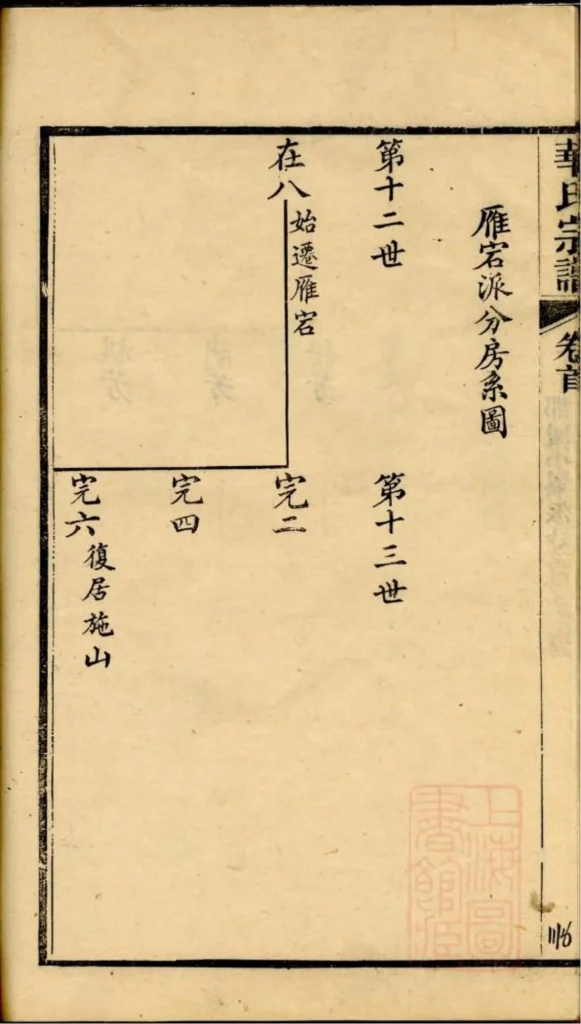 華氏宗譜
卷首
雁宕派分房系圖
第十二世
第十三世
在八
始遷雁宕
完二
完四
完六
復居施山
上海圖
書館藏